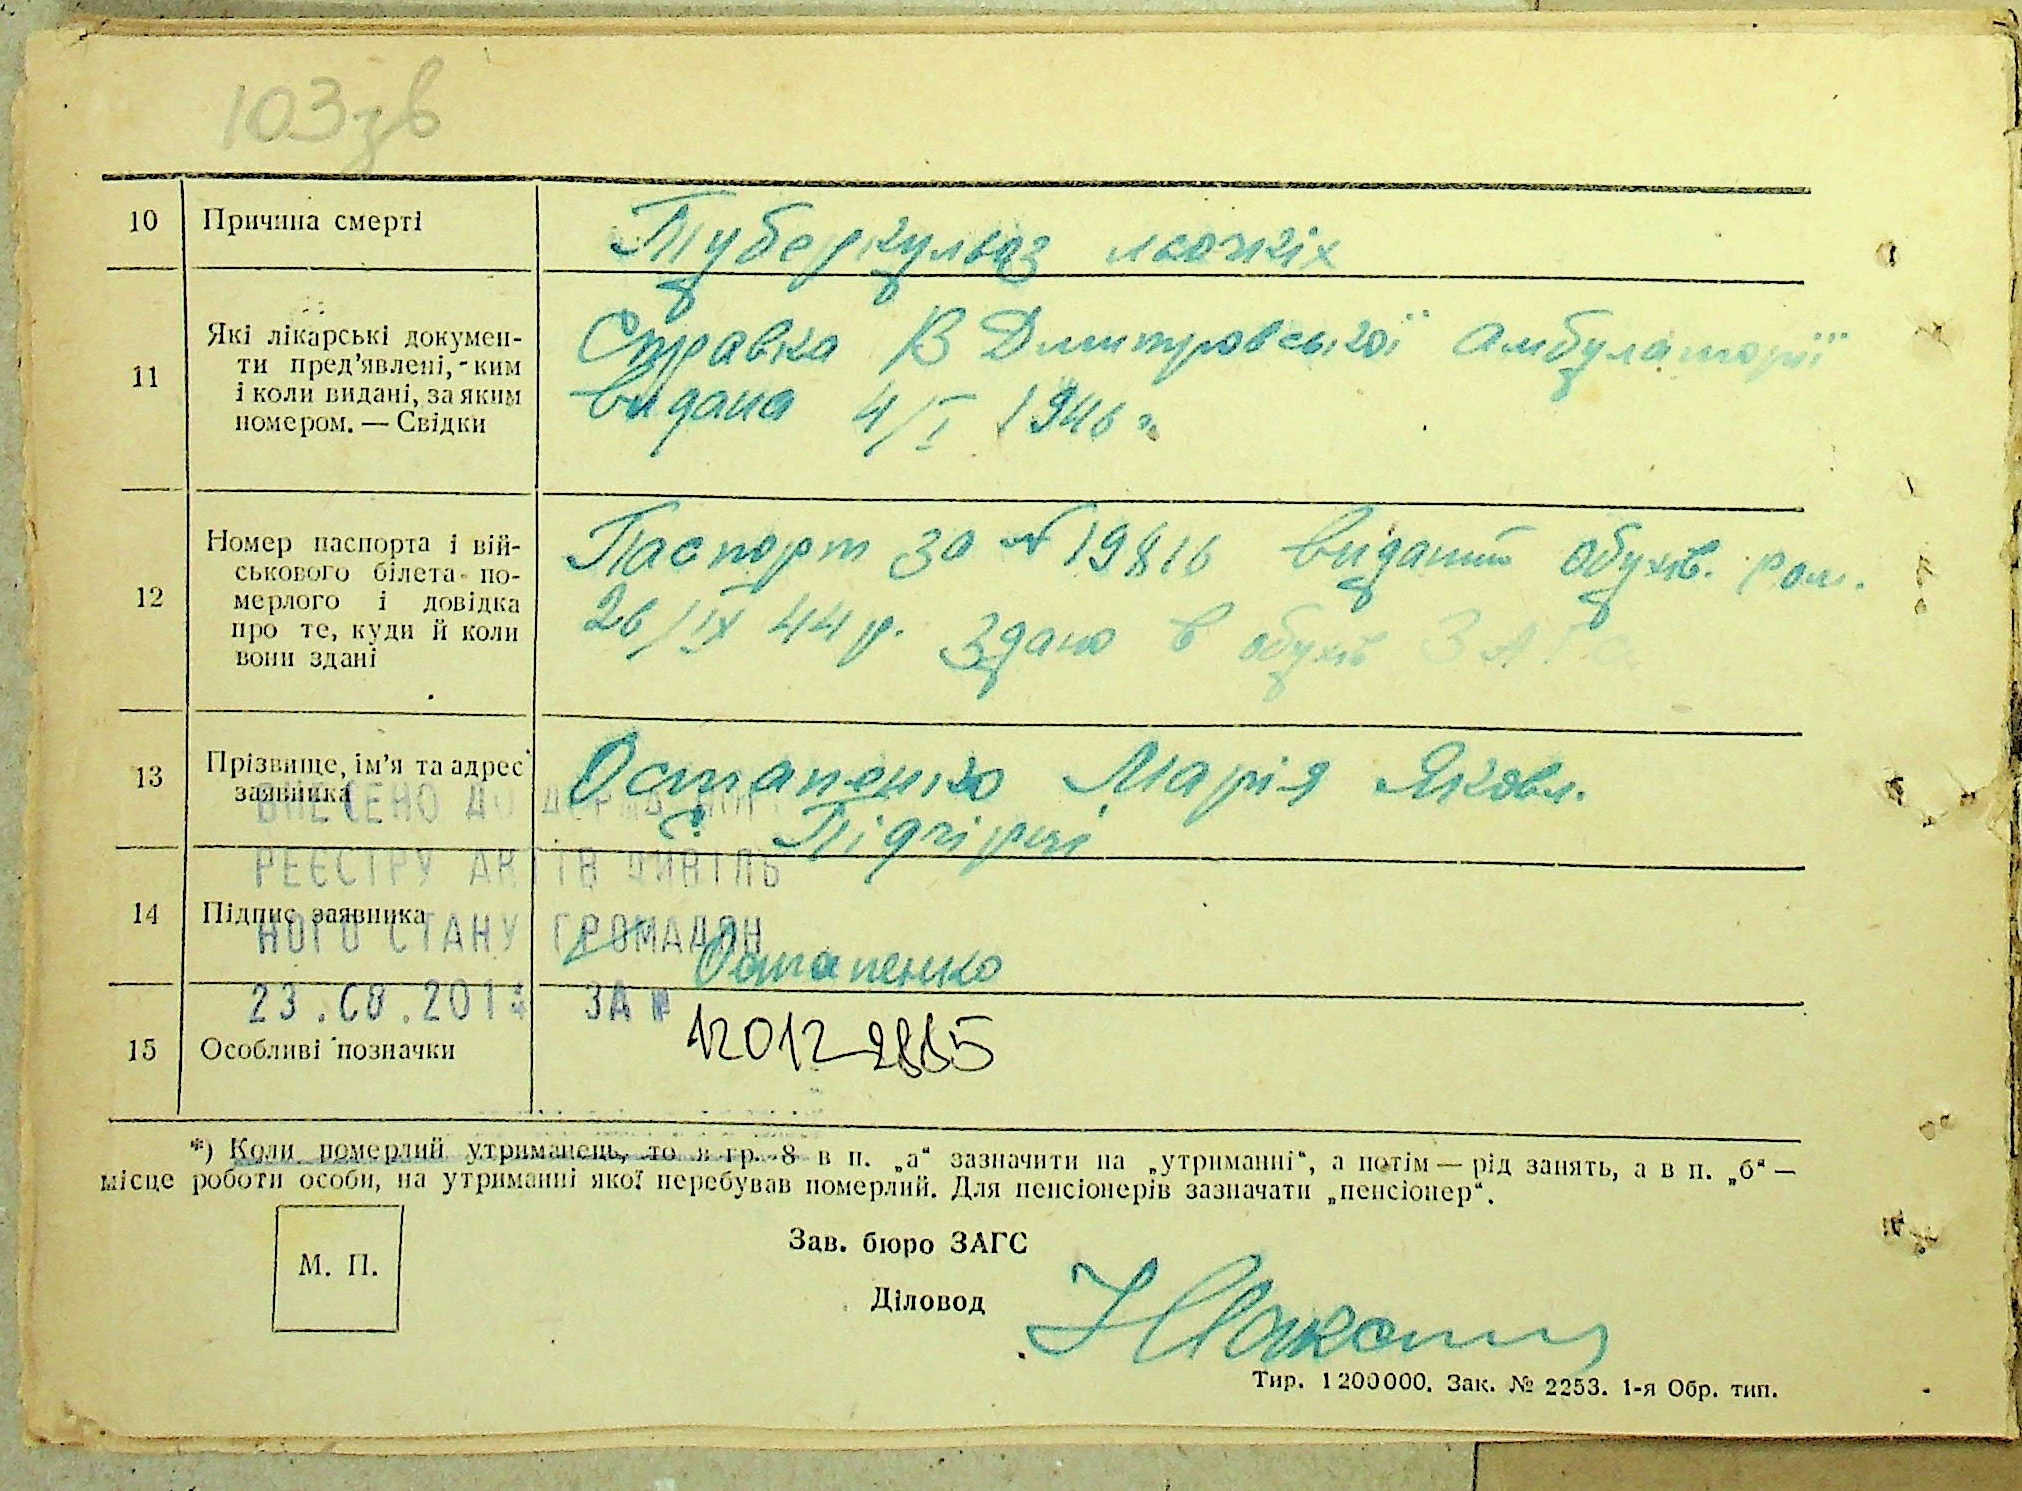 103 зв
10 Причина смерті
Туберкульоз легких
11 Які лікарські докумен-
ти пред'явлені, ким
і коли видані, за яким
номером. — Свідки
Справка В Дмитровської амбулаторії
видана 4/I 1946 р.
12 Номер паспорта і вій-
ськового білета по-
мерлого і довідка
про те, куди й коли
вони здані
Паспорт за № 19816 виданий обухів. рам.
26/IX 44 р. Здано в обухів ЗАГС
13 Прізвище, ім'я та адрес
заявника
Остапенко Марія Яковл.
с. Підгірці
ВНЕСЕНО ДО ДЕРЖАВНОГО
РЕЄСТРУ АКТІВ ЦИВІЛЬ
НОГО СТАНУ ГРОМАДЯН
14 Підпис заявника
Остапенко
23.08.201 ЗА №
12012885
15 Особливі позначки
*) Коли померлий утриманець, то в гр. 8 в п. „а“ зазначити на „утриманні“, а потім — рід занять, а в п. „б“ —
місце роботи особи, на утриманні якої перебував померлий. Для пенсіонерів зазначати „пенсіонер“.
М. П.
Зав. бюро ЗАГС
Діловод
Тир. 1200000. Зак. № 2253. 1-я Обр. тип.